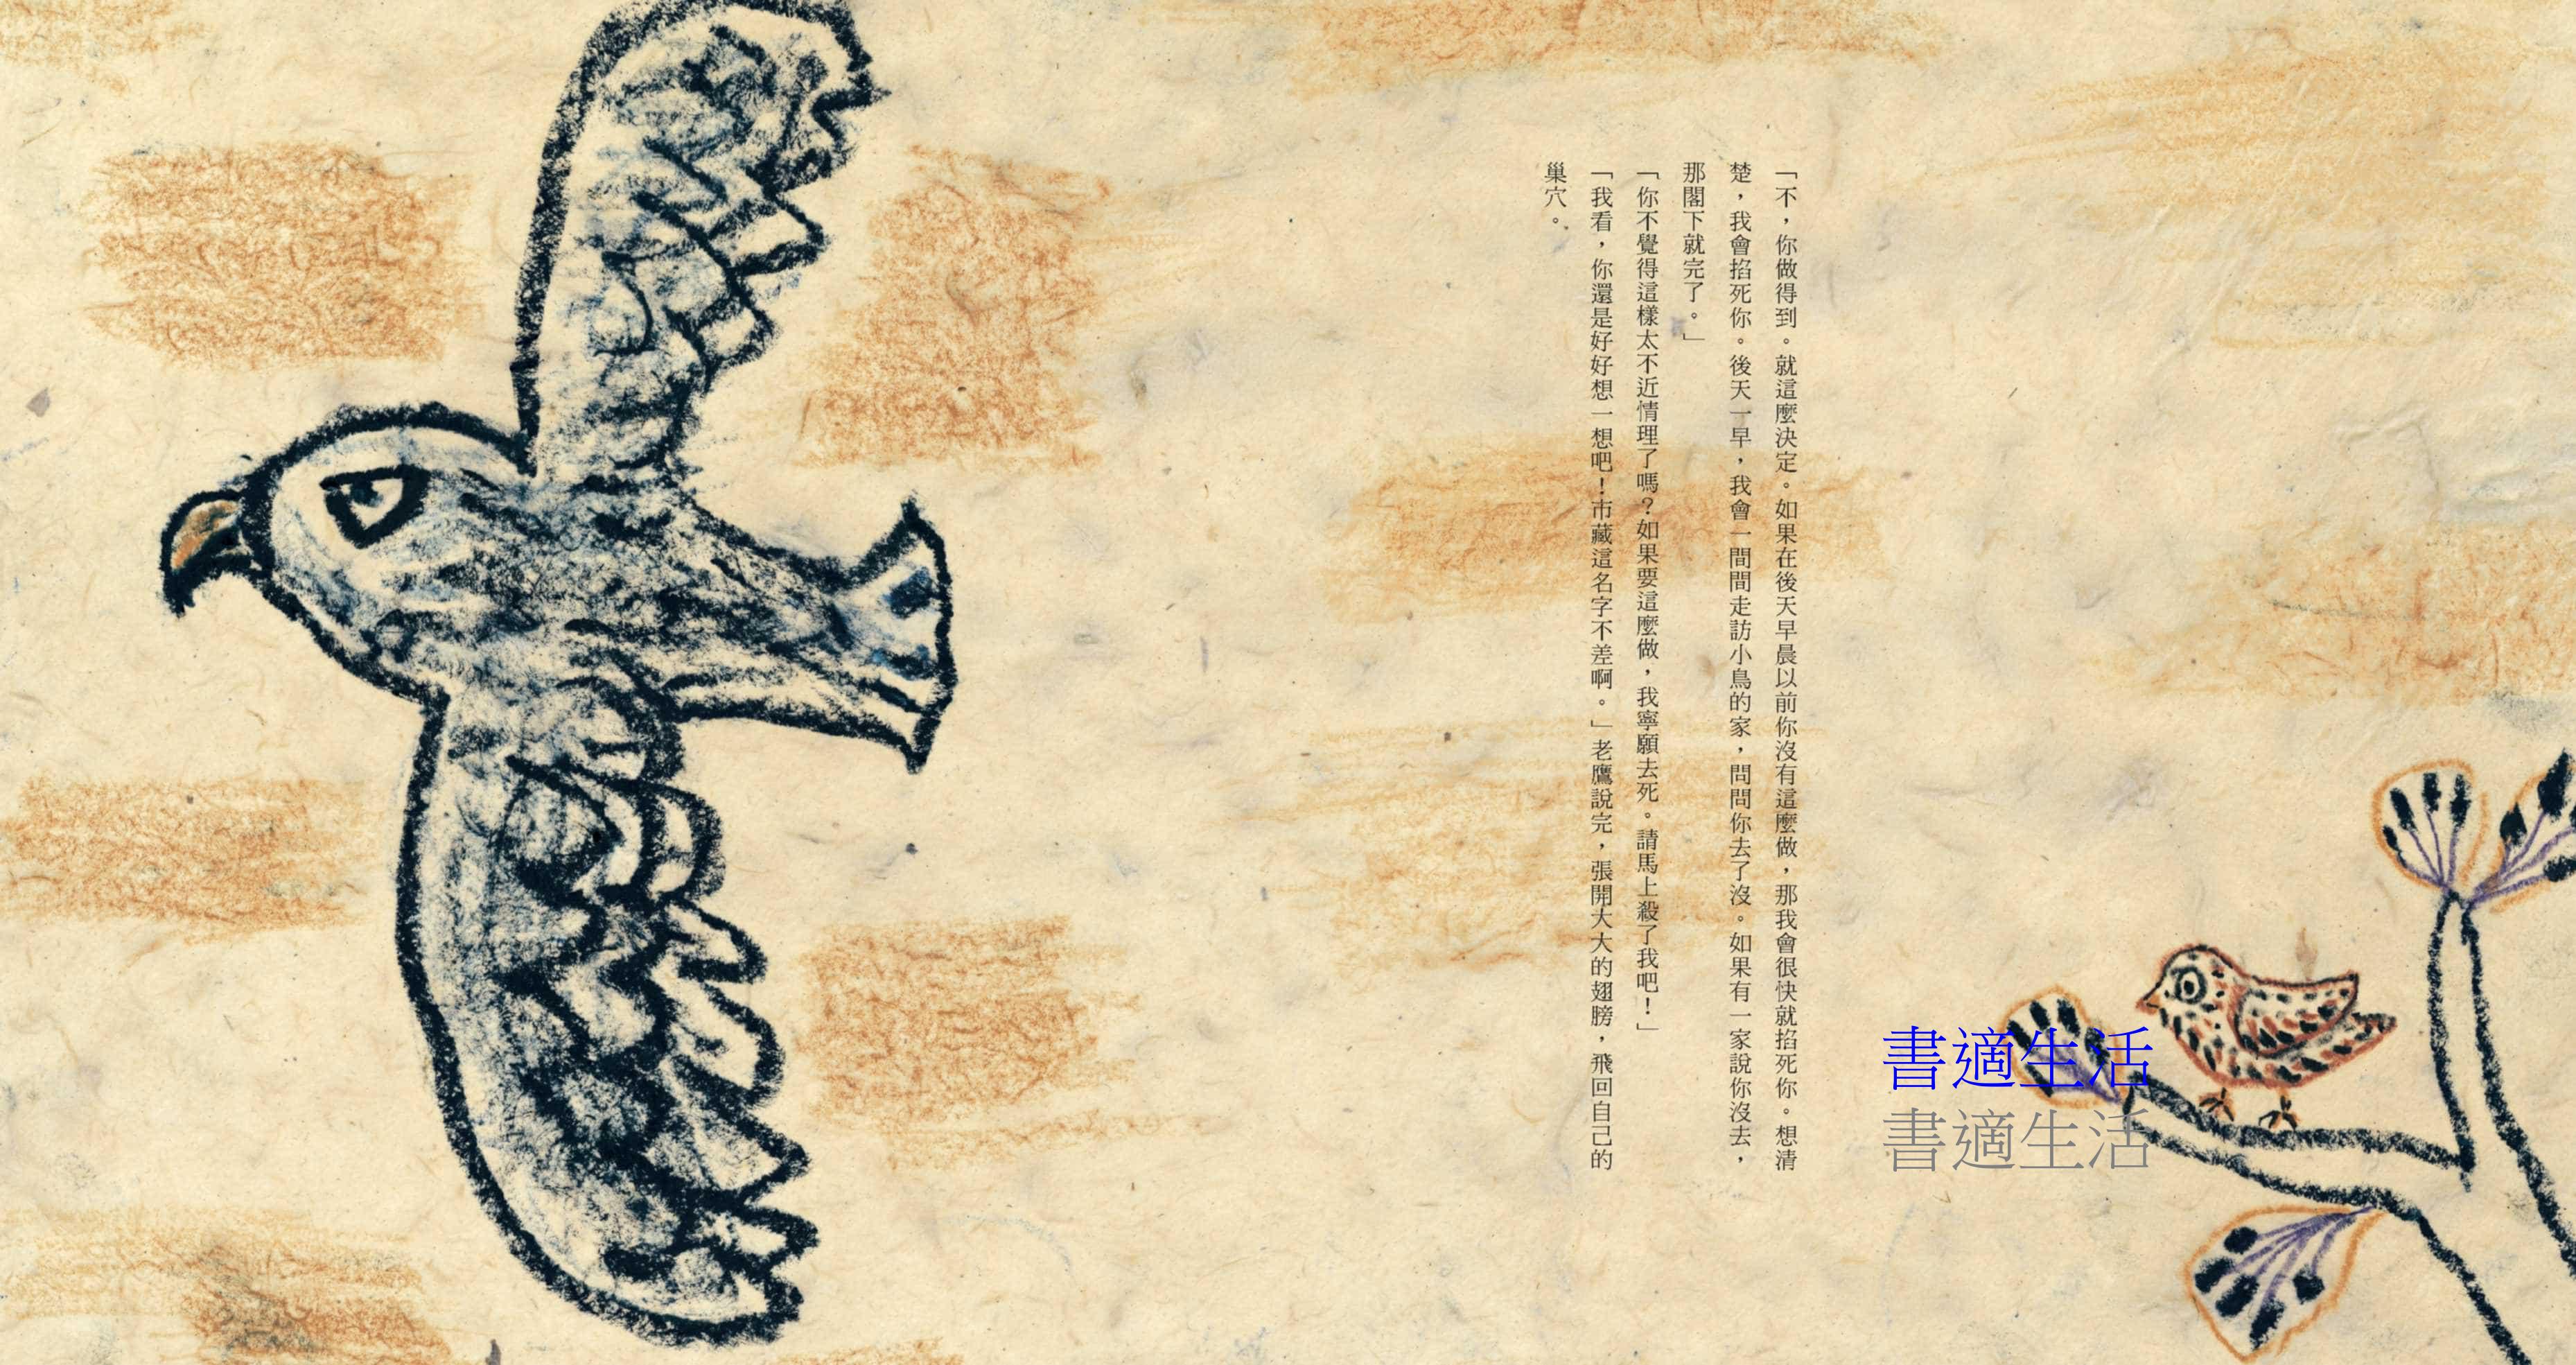 「不，你做得到。就這麼決定。如果在後天早晨以前你沒有這麼做，那我會很快就掐死你。想清
楚，我會掐死你。後天一早，我會一間間走訪小鳥的家，問問你去了沒。如果有一家說你沒去，
那閣下就完了。」
「你不覺得這樣太不近情理了嗎？如果要這麼做，我寧願去死。請馬上殺了我吧！」
「我看，你還是好好想一想吧！市藏這名字不差啊。」老鷹說完，張開大大的翅膀，飛回自己的
巢穴。
書適生活
書適生活